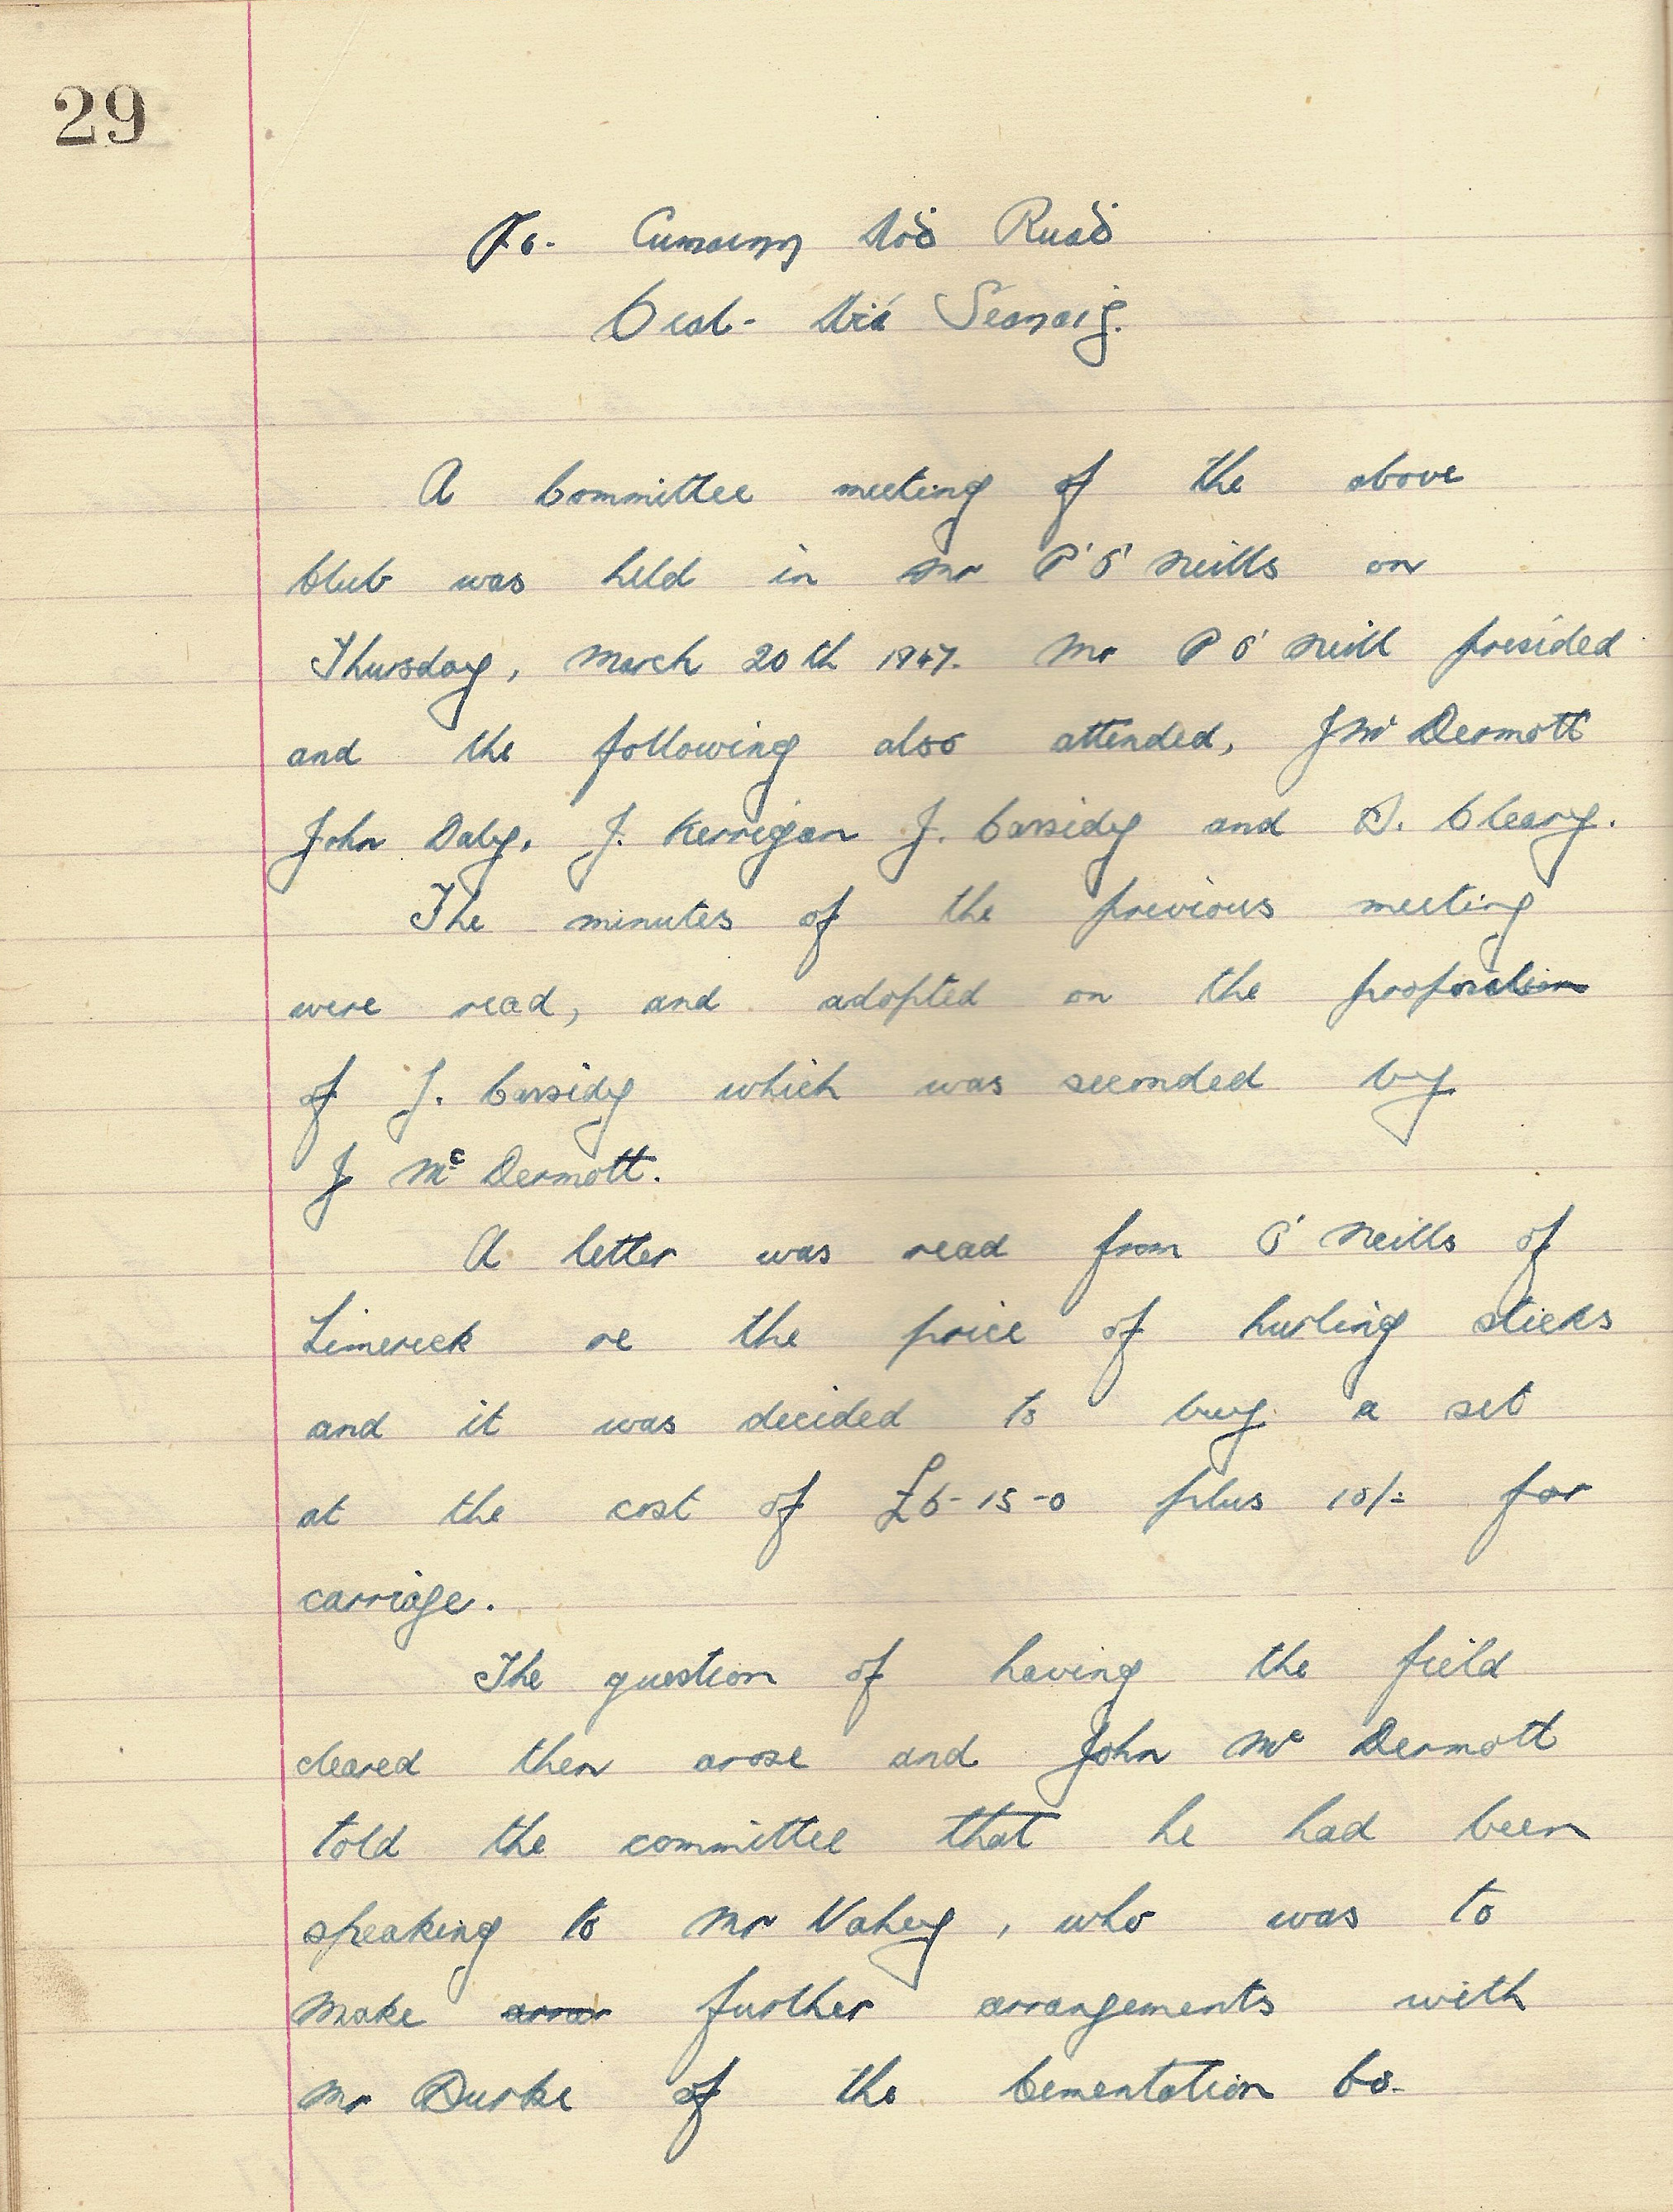 29
Cumainn Aoḋ Ruaḋ
Beal-Áṫa Seanaiġ.
A Committee meeting of the above
Club was held in Mr P O'Neills on
Thursday, March 20th 1947. Mr P O'Neill presided
and the following also attended, J Mc Dermott
John Daly, J. Kerrigan J. Cassidy and D. Cleary.
The minutes of the previous meeting
were read, and adopted on the proposition
of J. Cassidy which was seconded by
J Mc Dermott.
A letter was read from O'Neills of
Limerick re the price of hurling sticks
and it was decided to buy a set
at the cost of £6-15-0 plus 10/= for
carriage.
The question of having the field
cleared then arose and John Mc Dermott
told the committee that he had been
speaking to Mr Vahey, who was to
make arrar further arrangements with
Mr Burke of the Cementation Co.